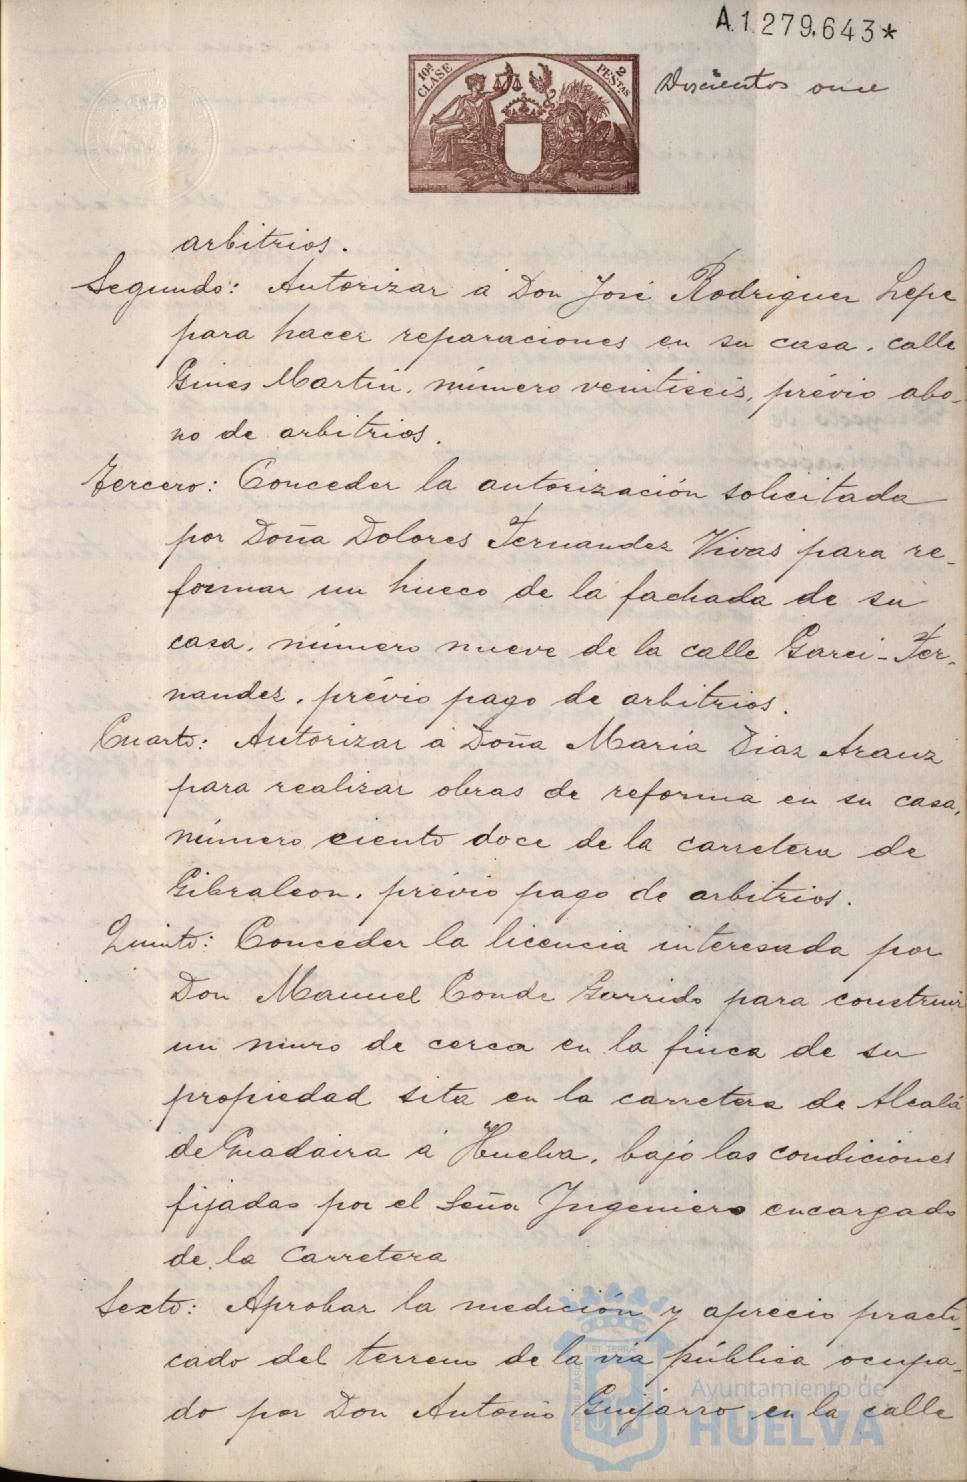 A.1.279.643*
10ª CLASE
2 PESTAS
Doscientos once
arbitrios.
Segundo: Autorizar á Don José Rodriguez Lepe
para hacer reparaciones en su casa, calle
Gines Martin, número veintiseis, prévio abo-
no de arbitrios.
Tercero: Conceder la autorización solicitada
por Doña Dolores Fernandez Vivas para re-
formar un hueco de la fachada de su
casa, número nueve de la calle Garci-Fer-
nandez, prévio pago de arbitrios.
Cuarto: Autorizar á Doña Maria Diaz Arauz
para realizar obras de reforma en su casa,
número ciento doce de la carretera de
Gibraleon, prévio pago de arbitrios.
Quinto: Conceder la licencia interesada por
Don Manuel Conde Garrido para construir
un muro de cerca en la finca de su
propiedad sita en la carretera de Alcalá
de Guadaira á Huelva, bajo las condiciones
fijadas por el Señor Ingeniero encargado
de la Carretera
Sexto: Aprobar la medición y aprecio practi-
cado del terreno de la via pública ocupa-
do por Don Antonio Guijarro en la calle
Ayuntamiento de
HUELVA